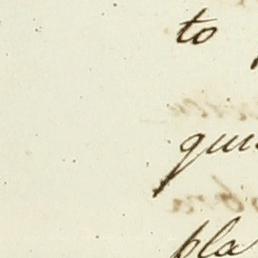 to
qui
pla